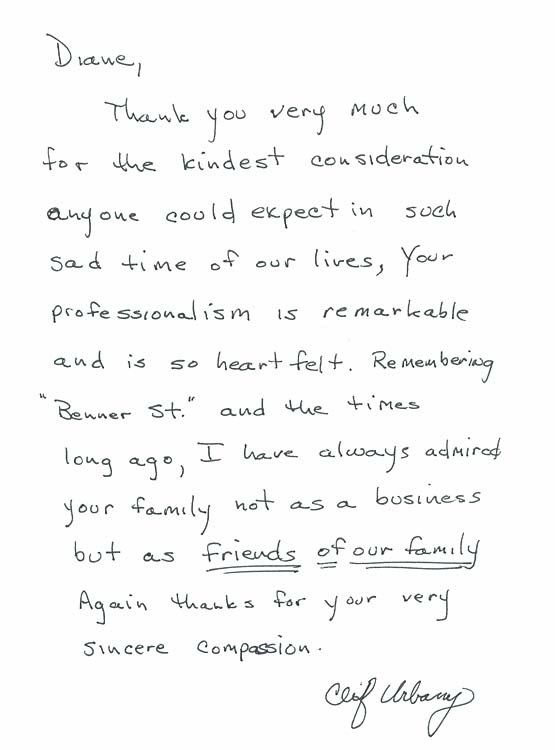 Diane,
Thank you very much
for the kindest consideration
anyone could expect in such
sad time of our lives, Your
professionalism is remarkable
and is so heart felt. Remembering
"Benner St." and the times
long ago, I have always admired
your family not as a business
but as friends of our family
Again thanks for your very
sincere compassion.
Clif Urbany